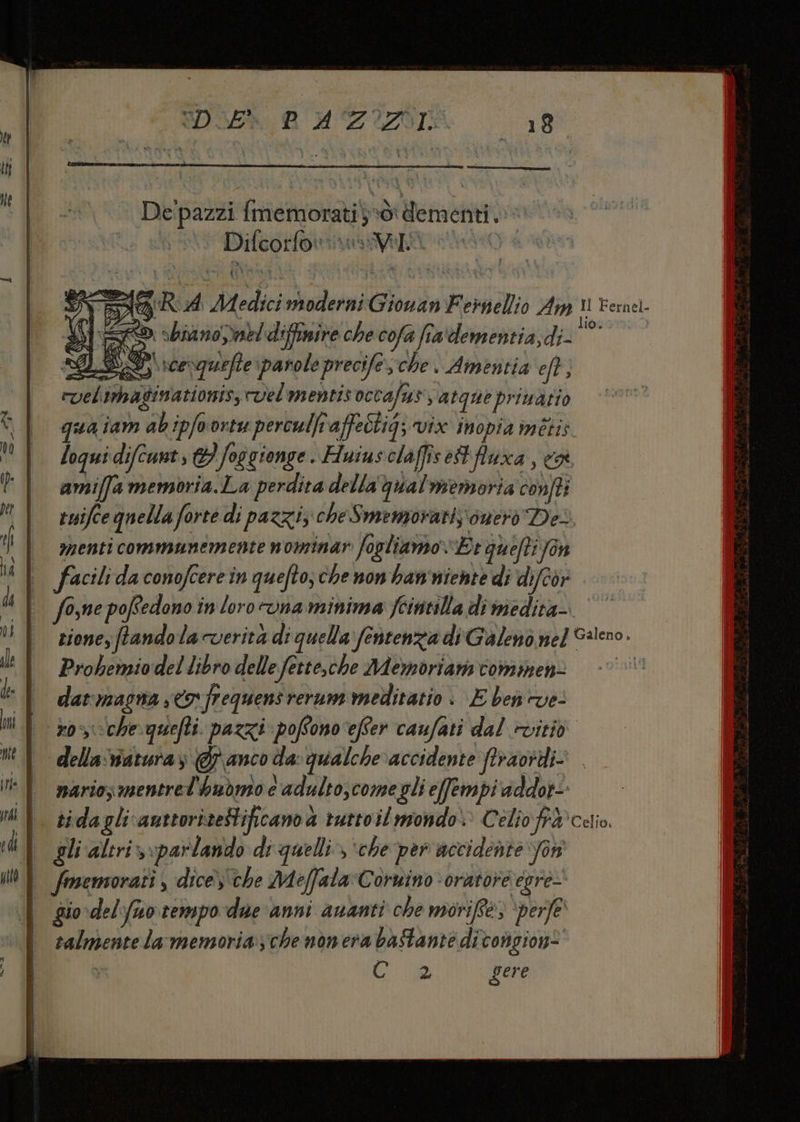 DE' PAZZI. 18
De'pazzi ſmemorati, ò dementi.
Diſcorſo VI.
FRA Medici moderni Giouan Fernellio Am
Il Fernel-
lio.
biano, nel diffinire che coſa ſia dementia, di-
ce queſte parole preciſe, che. Amentia eſt,
vel imaginationis, vel mentis occaſus, atque priuatio
qua iam ab ipſo ortu perculſi affectiq; vix inopia mẽtis
loqui diſcunt, & ſoggionge. Huius claſſis eſt fluxa, &
amiſſa memoria. La perdita della qual memoria conſti
tuiſce quella ſorte di pazzi, che Smemorati, ouerò De-
menti communemente nominar ſogliamo. Et queſti ſon
facili da conoſcere in queſto, che non han niente di diſcor
ſo, ne poſſedono in loro vna minima ſcintilla di medita-
tione, ſtando la verità di quella ſentenza di Galeno nel
Galeno.
Prohemio del libro delle ſette, che Memoriam commen-
dat magna, & frequens rerum meditatio. E ben ve-
ro, che queſti pazzi poſſono eſſer cauſati dal vitio
della natura, & anco da qualche accidente ſtraordi-
nario, mentre l'huomo è adulto, come gli eſſempi addot-
ti da gli auttori teſtificano à tutto il mondo. Celio frà
Celio.
gli altri, parlando di quelli, che per accidente ſon
ſmemorati, dice, che Meſſala Coruino oratore egre-
gio del ſuo tempo due anni auanti che moriſſe, perſe
talmente la memoria, che non era baſtante di congion-
C 2 gere